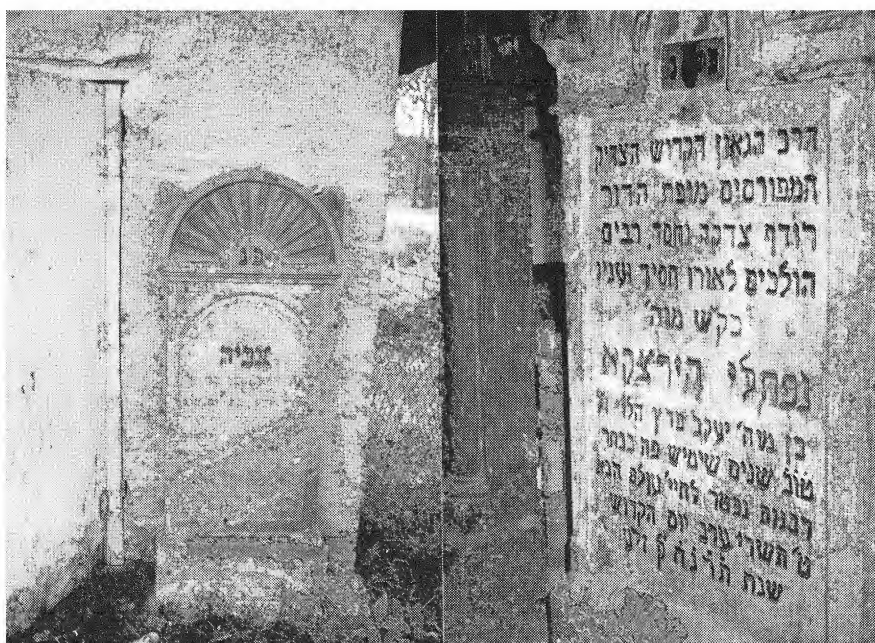 פנ
צביה
פ נ
הרב הגאון הקדוש הצדיק
המפורסים מופת הדור
רודף צדקה וחסד, רבים
הולכים לאורו חסיד ועניו
כקש מוה'
נפתלי הירצקא
בן מוה' יעקב פרץ הלוי
טוב שנים שימיש פה בכתר
רבנות נפטר לחיי עולם הבא
ט' תשרי ערב יום הקדוש
שנת תרנח